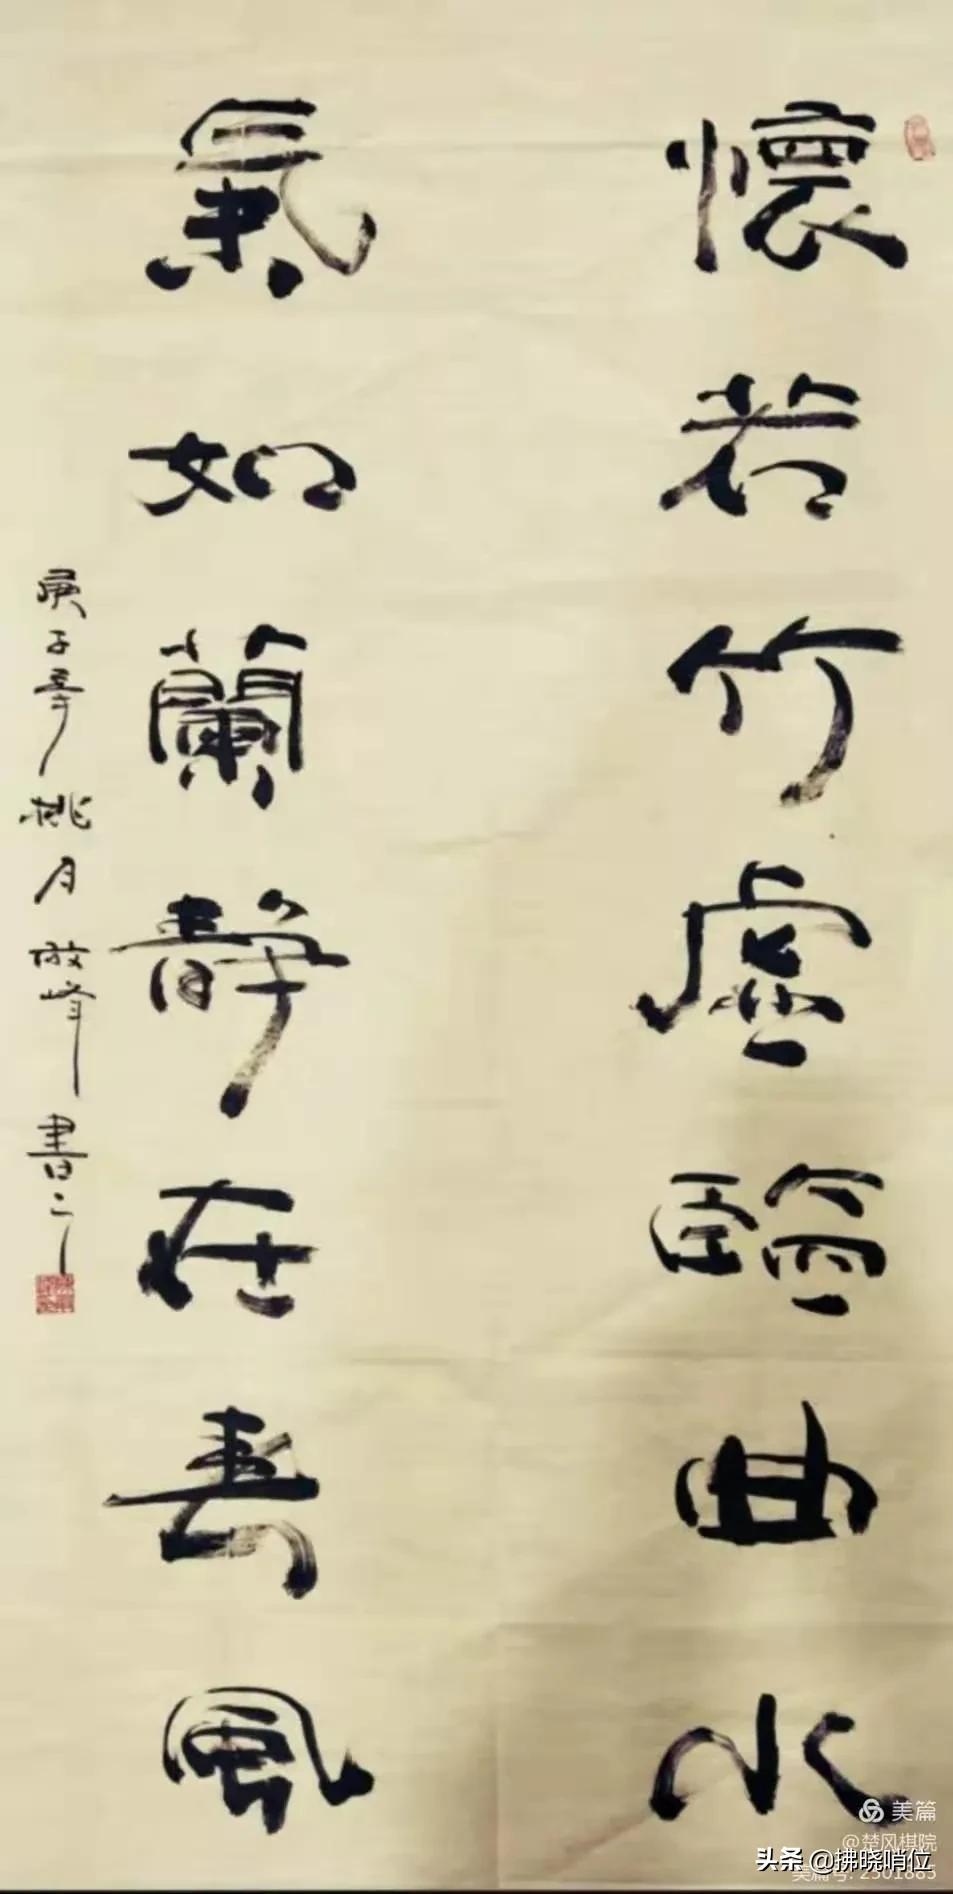 懷若竹虛臨曲水
氣如蘭靜在春風
庚子年桃月敬峰書之
美篇
@楚风棋院
头条 @拂晓哨位
美篇号: 2501885